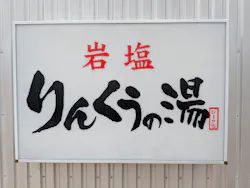 岩塩
りんくうの湯